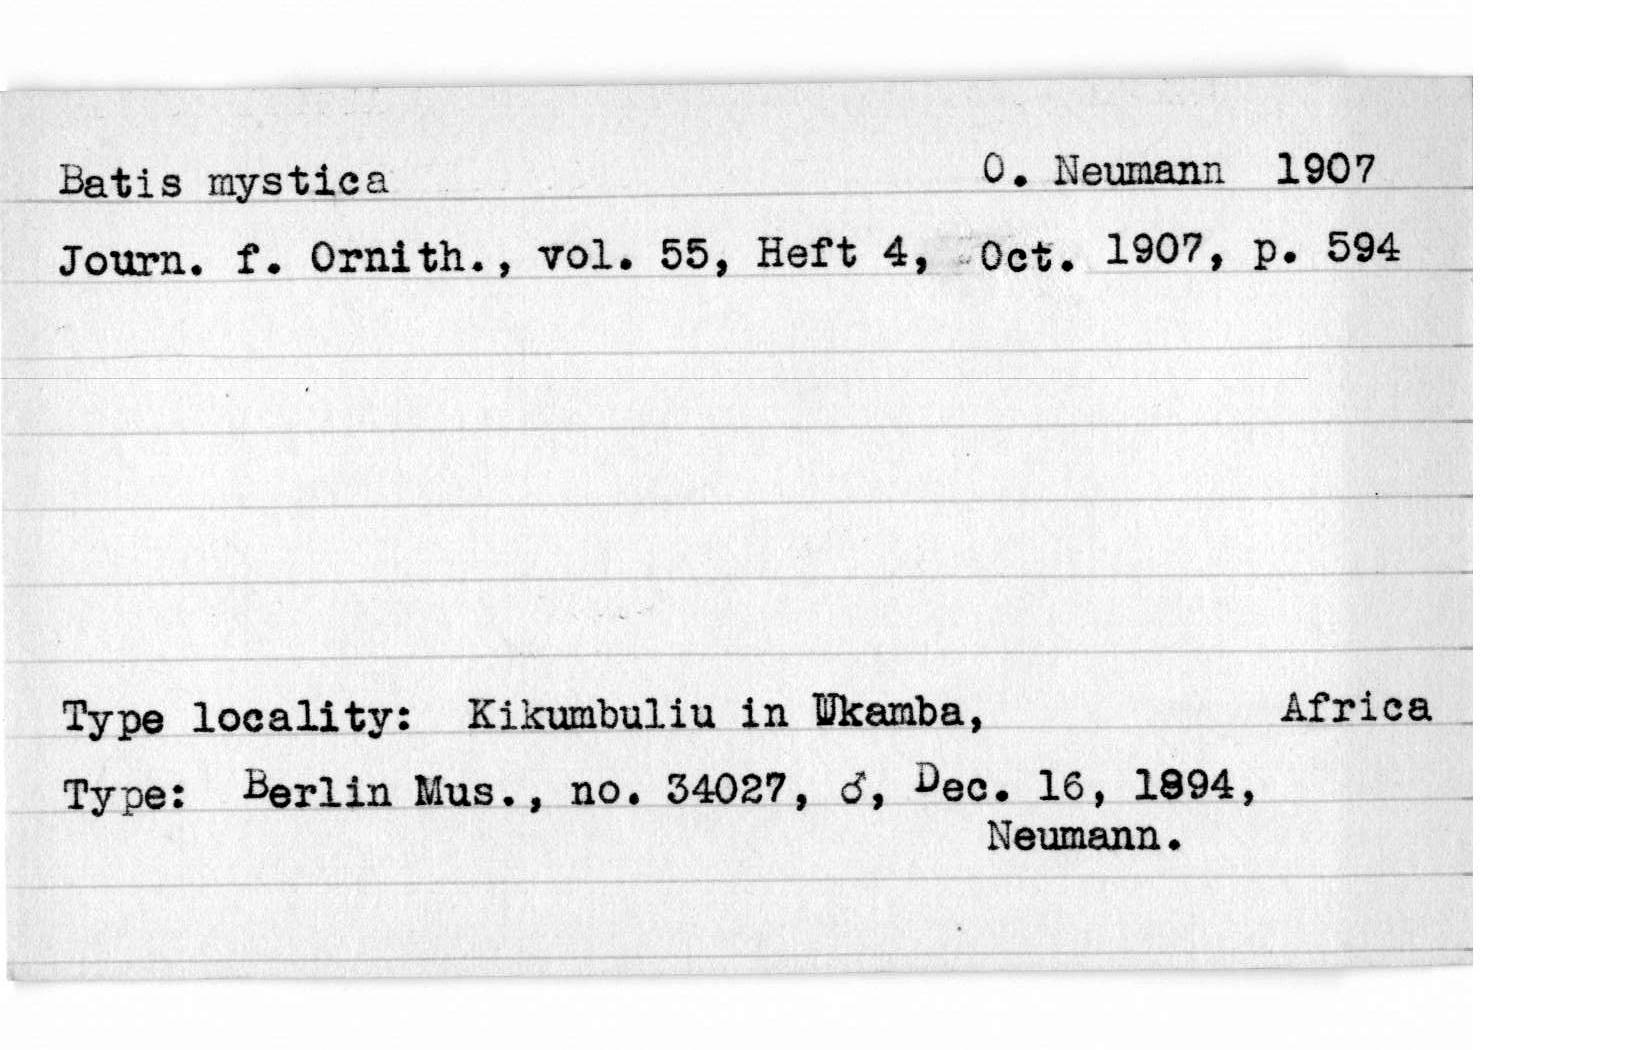 Batis mystica O. Neumann 1907
Journ. f. Ornith., vol. 55, Heft 4, Oct. 1907, p. 594
Type locality: Kikumbuliu in Ukamba, Africa
Type: Berlin Mus., no. 34027, ♂, Dec. 16, 1894,
Neumann.